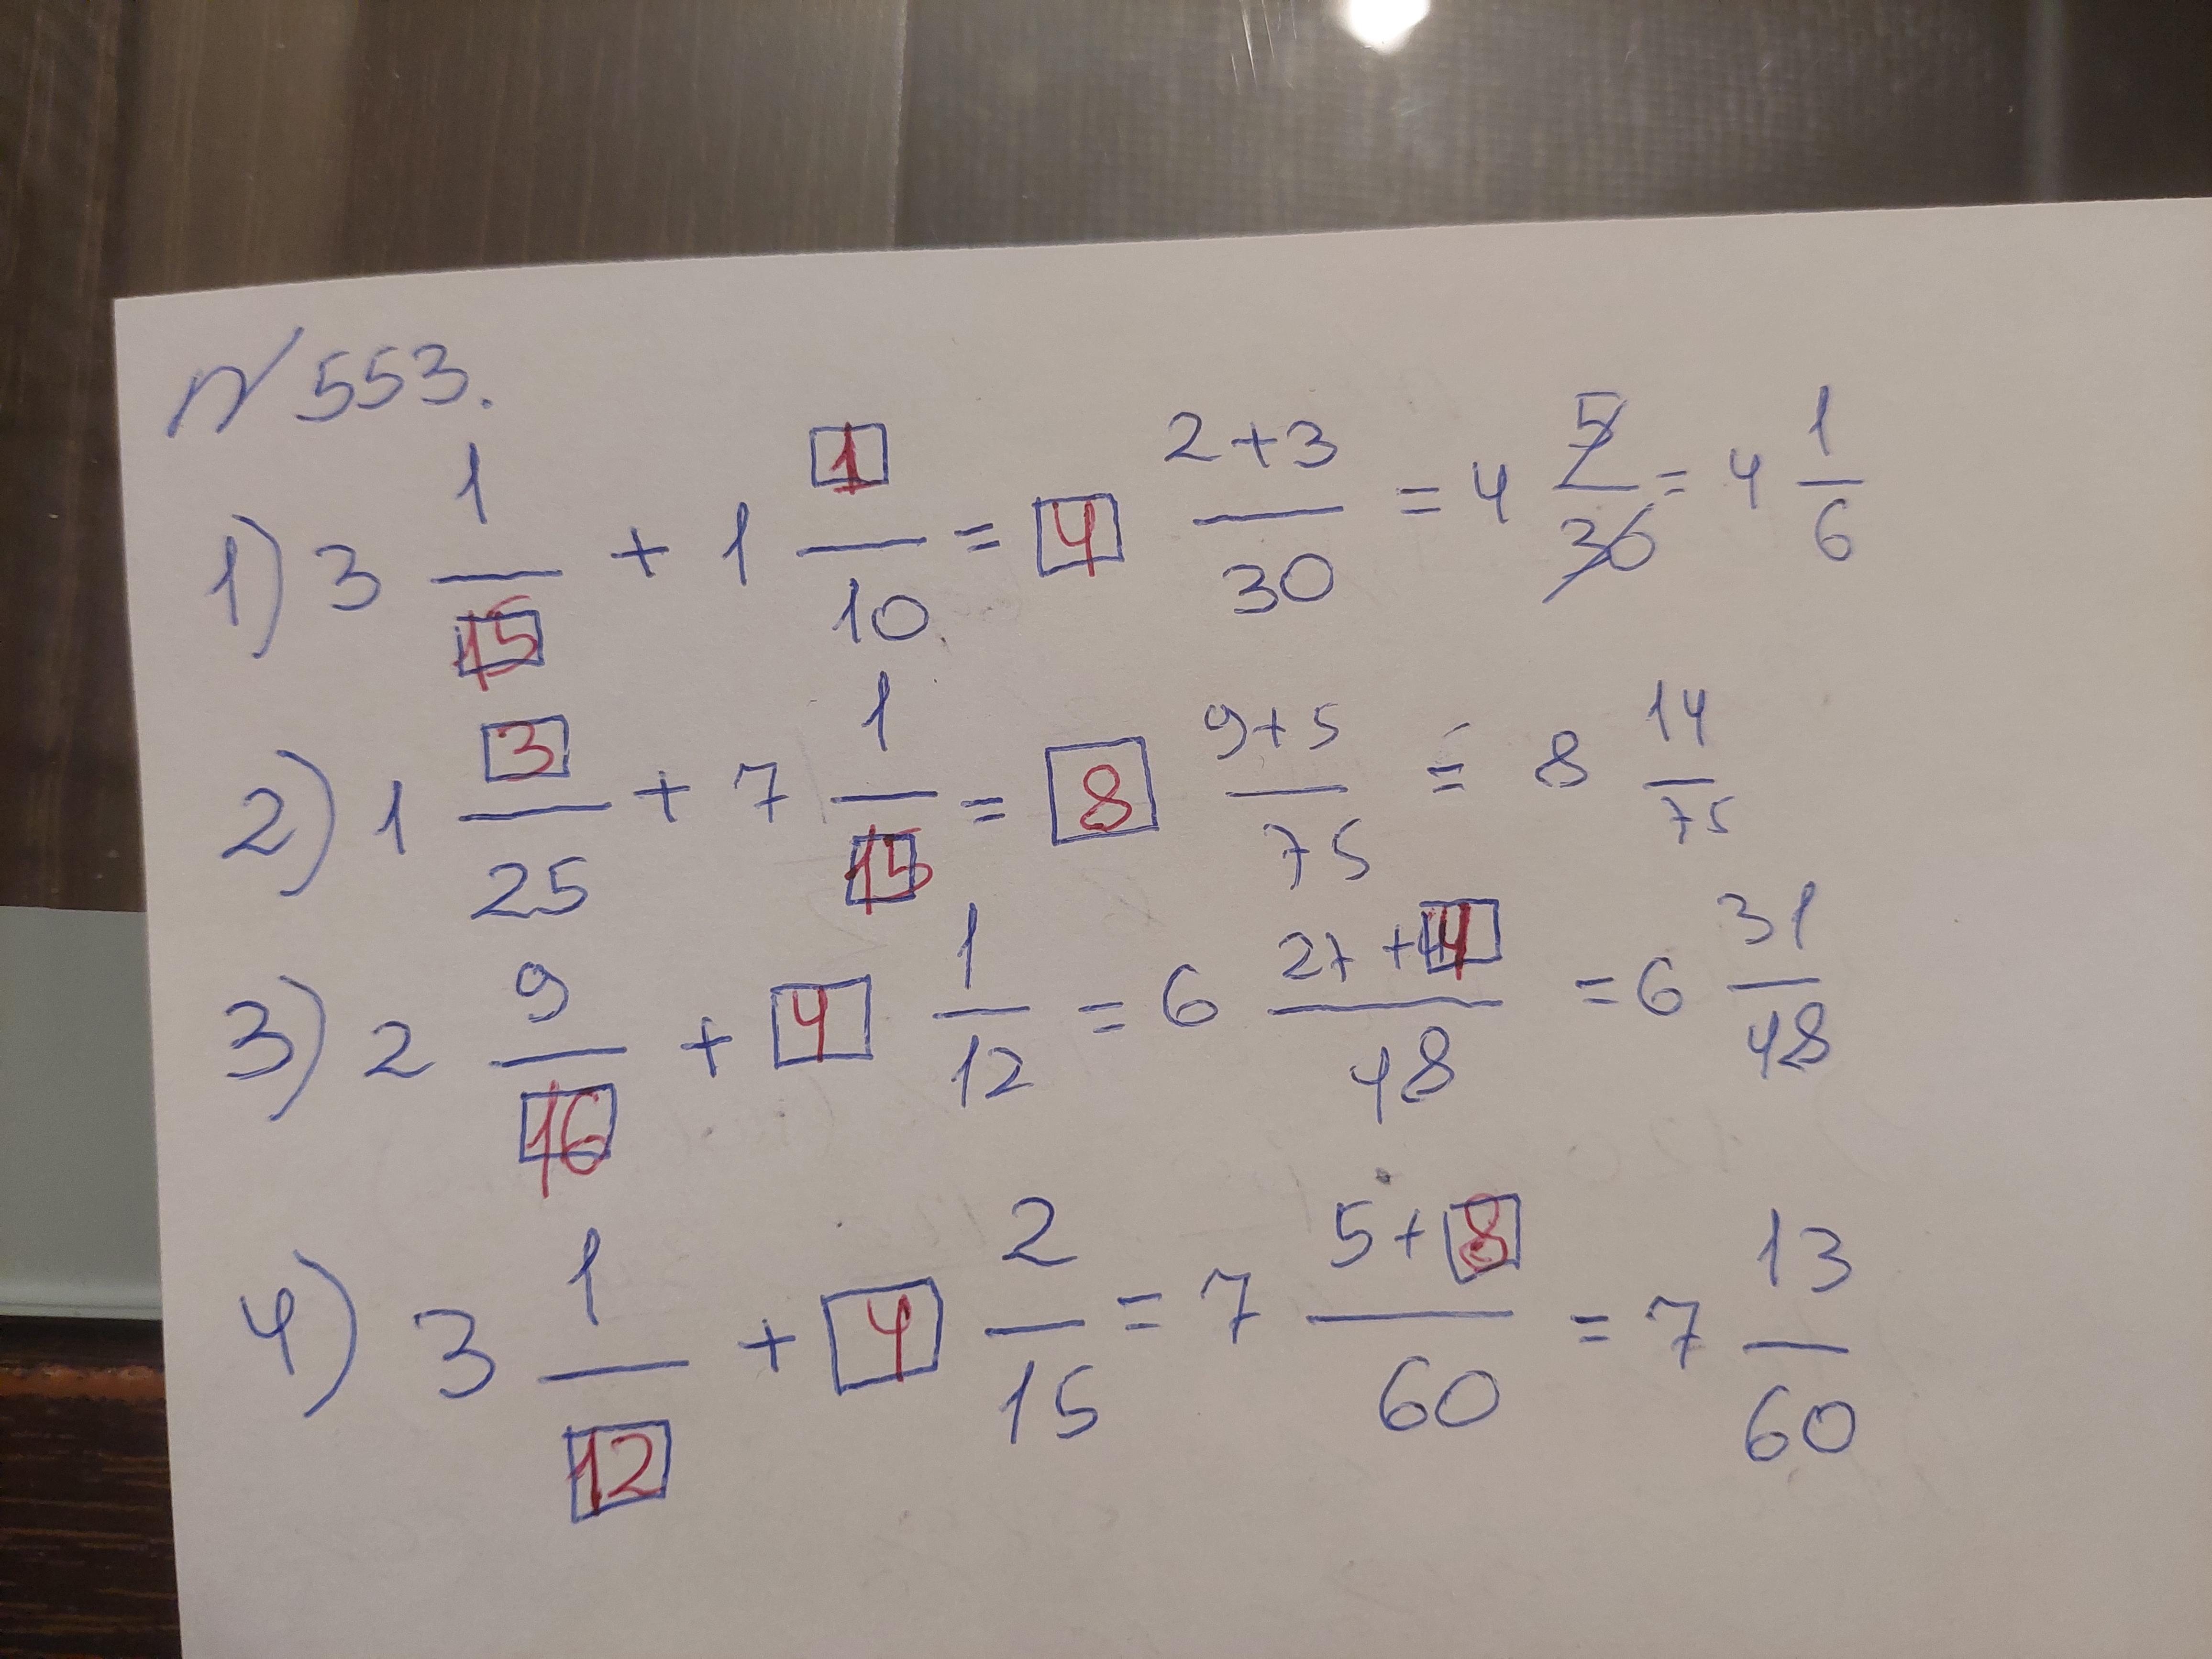 № 553.
1) 3 1/15 + 1 1/10 = 4 2+3/30 = 4 5/30 = 4 1/6
2) 1 3/25 + 7 1/15 = 8 9+5/75 = 8 14/75
3) 2 9/16 + 4 1/12 = 6 27+4/48 = 6 31/48
4) 3 1/12 + 4 2/15 = 7 5+8/60 = 7 13/60